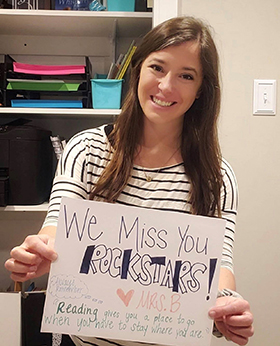 We Miss You
ROCKSTARS!
♥ MRS. B
Always
Remember
Reading gives you a place to go
when you have to stay where you are